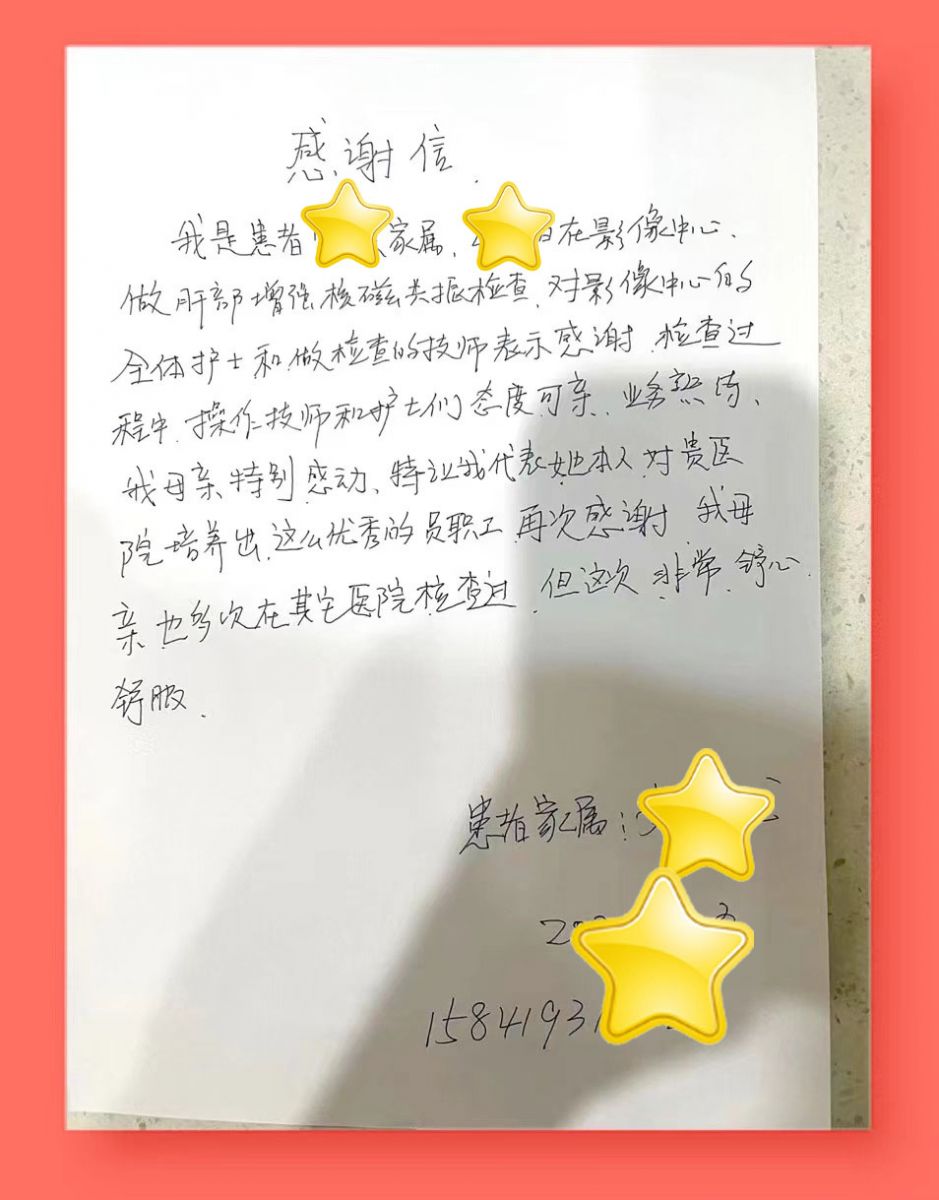 感谢信.
我是患者 家属, 在影像中心、
做肝部增强核磁共振检查,对影像中心的
全体护士和做检查的技师表示感谢,检查过
程中,操作技师和护士们态度可亲、业务熟练、
我母亲特别感动、特让我代表她本人对贵医
院培养出这么优秀的员职工再次感谢,我母
亲也多次在其它医院检查过,但这次非常舒心.
舒服.
患者家属:
15841931